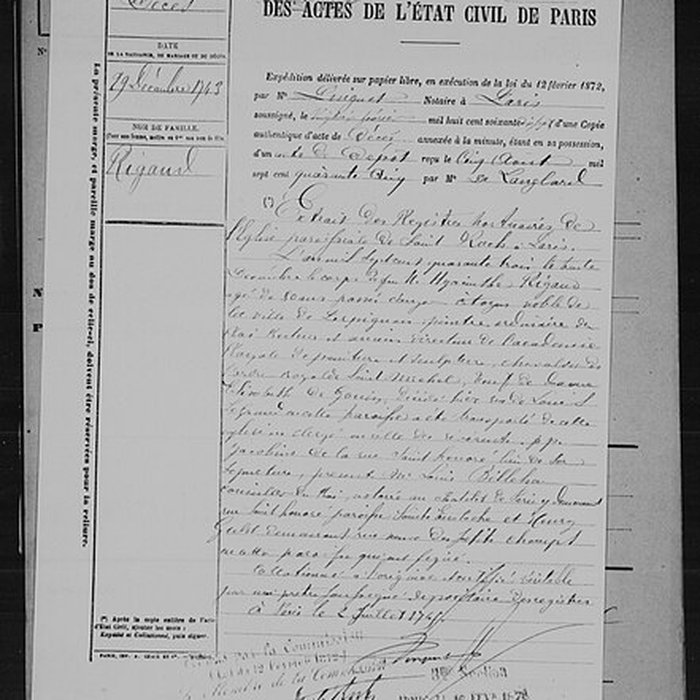 Décès
DATE
DE LA NAISSANCE, DU MARIAGE OU DU DÉCÈS.
29 Décembre 1743
NOM DE FAMILLE.
Rigaud
La présente marge, et pareille marge au dos de celle-ci, doivent être réservées pour la reliure.
(*) Après la copie entière de l'acte
d'État Civil, ajouter les mots :
Expédié et Collationné, puis signer.
DES ACTES DE L'ÉTAT CIVIL DE PARIS
Expédition délivrée sur papier libre, en exécution de la loi du 12 février 1872,
par Me Notaire à Paris
soussigné, le mil huit cent soixante d'une Copie
authentique d'acte de Décès annexée à la minute, étant en sa possession,
d'un acte de Dépôt reçu le Cinq Aout mil
sept cent quarante Cinq par Me de Langlard
(*) Extrait des Registres Mortuaires de
l'Eglise paroissiale de Saint Roch à Paris.
L'an mil sept cent quarante trois le trente
Décembre le corps de feu M. Hyacinthe Rigaud
agé de ans passé citoyen noble de
la ville de Perpignan peintre ordinaire du
Roi Recteur et ancien directeur de l'académie
Royale de peinture et sculpture, chevalier de
l'ordre royal de Saint Michel, veuf de dame
Elisabeth de Gouix, décédé hier rue de Louis le
grand en cette paroisse a été transporté de cette
église en celle des révérends pp.
Jacobins de la rue Saint honoré lieu de sa
sépulture, présents Mr Louis
conseiller du Roi, notaire au Chatelet de Paris y demeurant
rue Saint honoré paroisse Sainte Eustache et Henry
demeurant rue neuve des petits champs
cette paroisse qui ont signé.
Collationné à l'original et véritable
par moi prêtre dépositaire des registres
à Paris le 2 Juillet 1745.
par la Commission
(Loi du 12 Février 1872)
Le Membre de la Commission
Section
FÉVR. 187